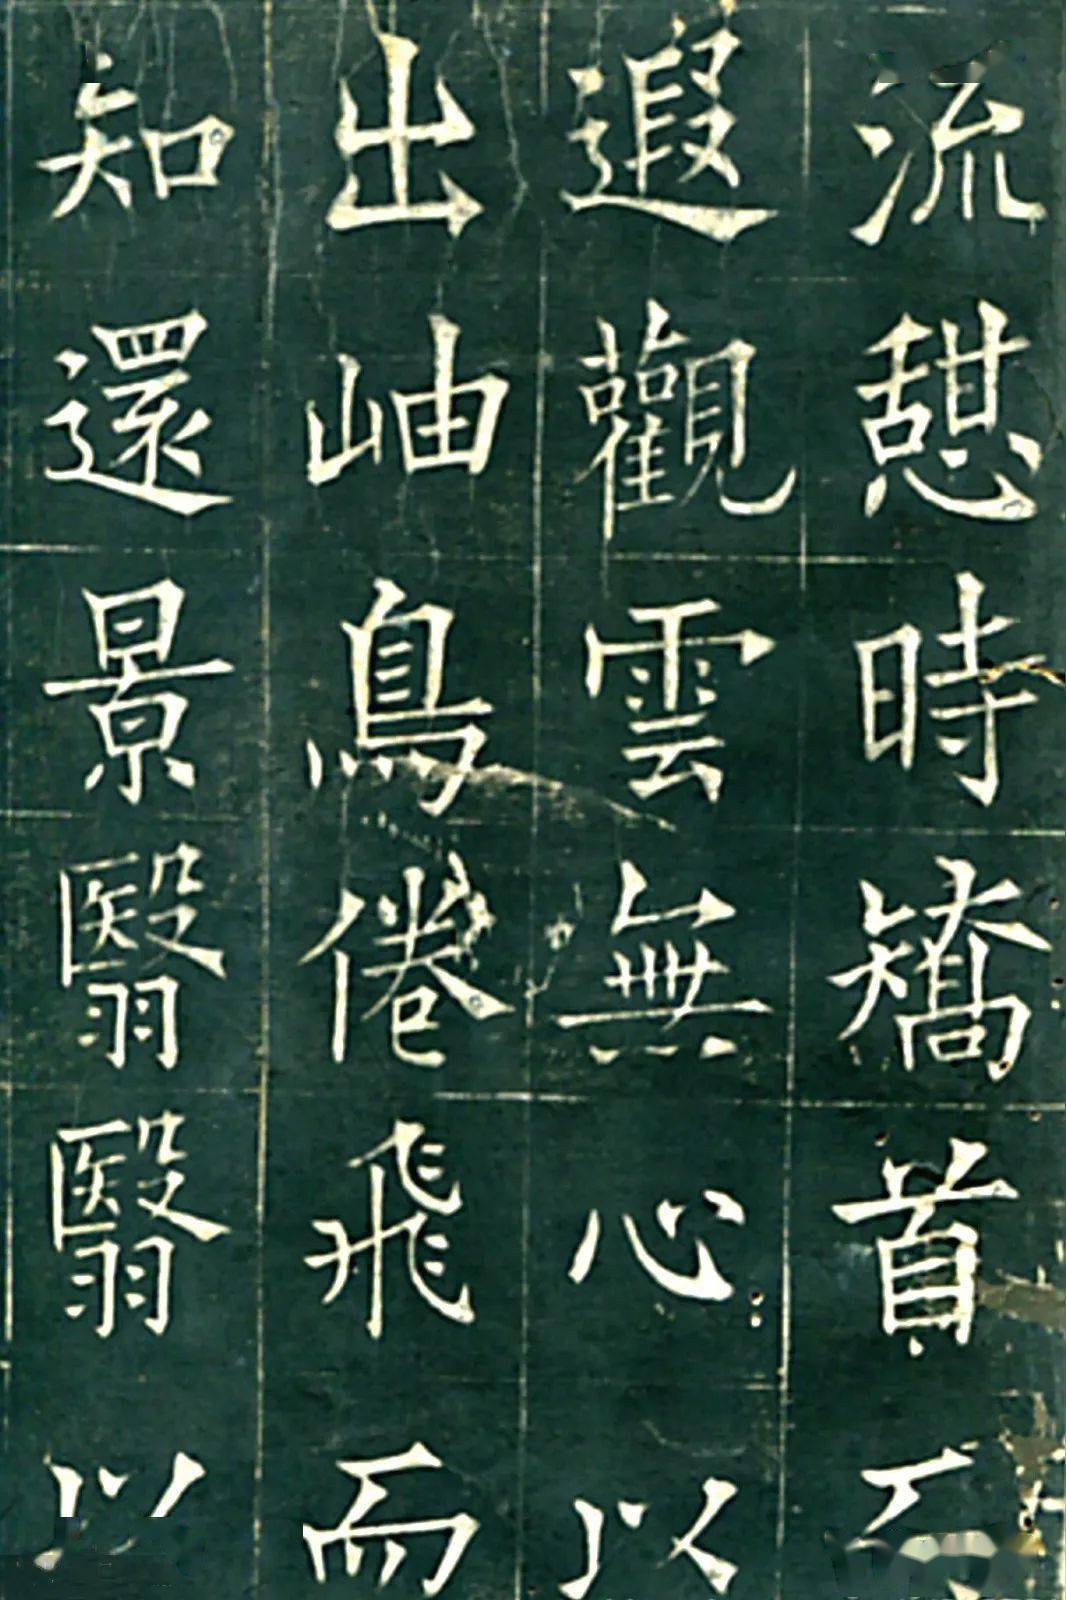 流憩時矯首而
遐觀雲無心以
出岫鳥倦飛而
知還景翳翳以